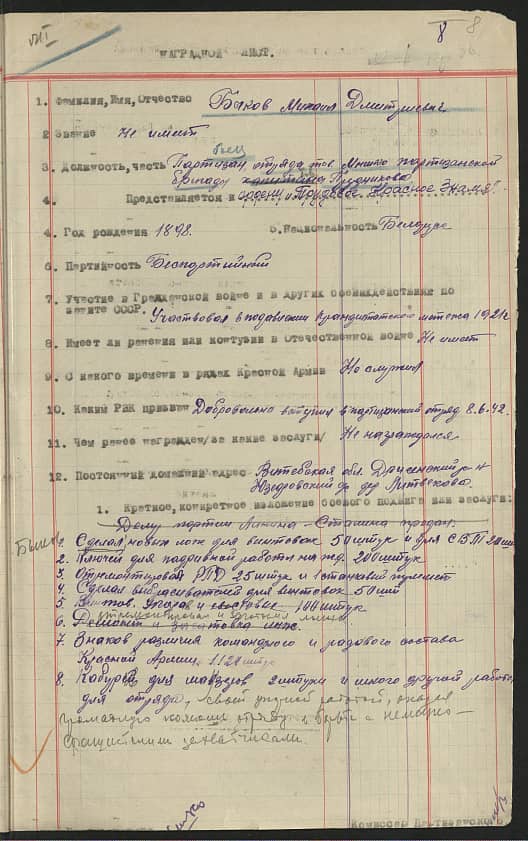 VIII
8 8
НАГРАДНОЙ ЛИСТ.
1. Фамилия, Имя, Отчество Быков Михаил Дмитриевич
2 Звание Не имеет
боец
3. Должность, часть Партизан отряда тов. Мишко партизанской
бригады капитана Прудникова
4. Представляется к орден "Трудовое Красное Знамя".
4. Год рождения 1898. 5. Национальность Белорус
6. Партийность Беспартийный
7. Участие в Гражданской войне и в других боевых действиях по
защите СССР. Участвовал в подавлении Кронштадтского мятежа 1921г
8. Имеет ли ранения или контузии в Отечественной войне Не имеет
9. С какого времени в рядах Красной Армии Не служил
10. Каким РВК призван Добровольно вступил в партизанский отряд 8.6.42.
11. Чем ранее награжден/за какие заслуги/ Не награждался
12. Постоянный домашний адрес Витебская обл. Дриссенский р-н
1. Краткое, конкретное изложение боевого подвига или заслуги:
Делу партии Ленина-Сталина предан.
1. Сделал новых лож для винтовок 50 штук и для СВТ
2. Ключей для подрывной работы на жд. 200 штук
3. Отремонтировал РПД 25 штук и 1 станковый пулемет
4. Сделал выбрасывателей для винтовок 50 шт
5. и 100 штук
6.
7. Знаков различия командного и рядового состава
Красной Армии 1120 штук
8. Кабуры для маузеров 2 штуки и много другой работы
для отряда, своей работой, оказал
громадную помощь отряду в борьбе с немецко-
фашистскими захватчиками.
Комиссар Партизанского